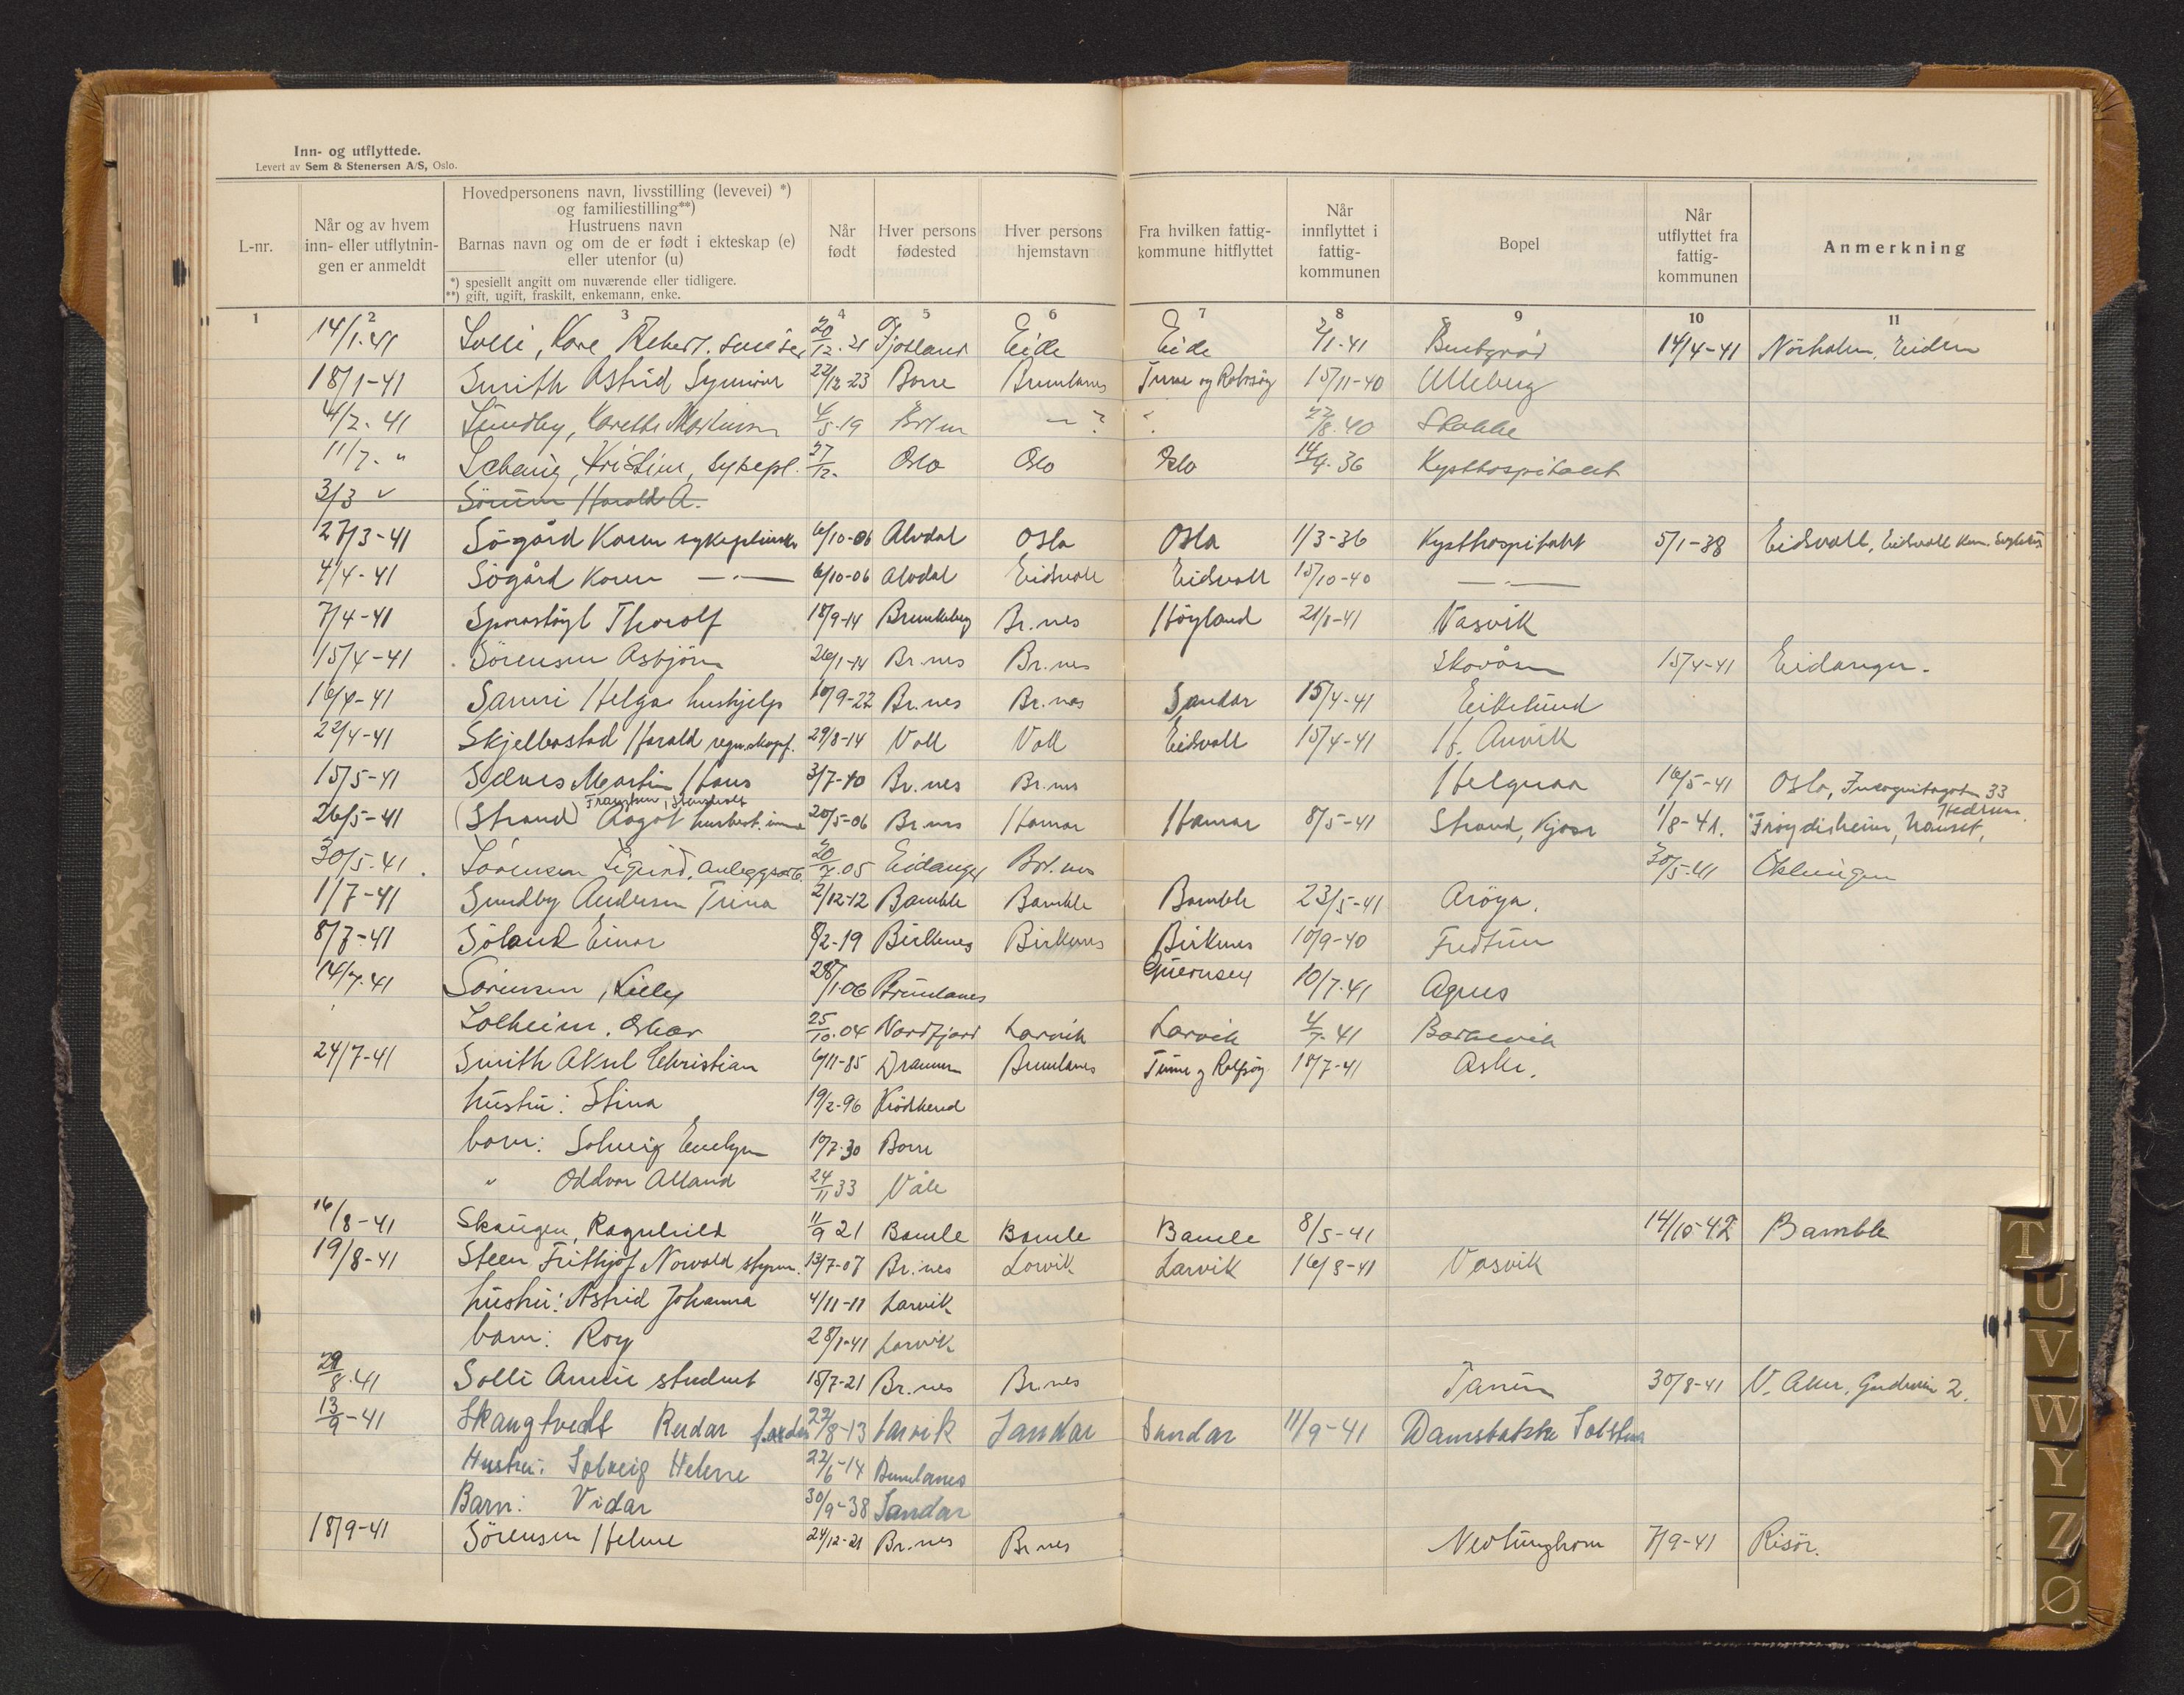 Inn- og utflyttede.
Levert av Sem & Stenersen A/S, Oslo.
L-nr.
Når og av hvem inn- eller utflytnin- gen er anmeldt
Hovedpersonens navn, livsstilling (levevei) *) og familiestilling**) Hustruens navn Barnas navn og om de er født i ekteskap (e) eller utenfor (u)
*) spesielt angitt om nuværende eller tidligere.
**) gift, ugift, fraskilt, enkemann, enke.
Når født
Hver persons fødested
Hver persons hjemstavn
Fra hvilken fattig- kommune hitflyttet
Når innflyttet i fattig- kommunen
Bopel
Når utflyttet fra fattig- kommunen
Anmerkning
1 2 3 4 5 6 7 8 9 10 11
14/1-41 Solli, Kåre 20/12-21 Fjotland Eide Eide 2/1-41 14/4-41
18/1-41 Smith Astrid 22/12-23 Borre Brunlanes Tune og Rolvsøy 15/11-40 Ulleberg
4/2-41 Sundby, 4/5-19 - ? 27/8-40
11/7- " Kristine, sykepl. 27/12- Oslo Oslo Oslo 14/4-36 Kysthospitalet
3/3 Sörum Harald A.
27/3-41 Sögård Karen sykepleierske 6/10-06 Alvdal Oslo Oslo 1/3-36 Kysthospitalet 5/1-38 Eidsvoll, Eidsvoll
4/4-41 Sögård Karen —"— 6/10-06 Alvdal Eidsvoll Eidsvoll 15/10-40 —"—
7/4-41 Thorolf 18/9-14 Brunkeberg Br.nes Höyland 21/8-41 Nasvik
15/4-41 Sörensen Asbjörn 26/1-14 Br.nes Br.nes Skovåsen 15/4-41 Eidanger.
16/4-41 Sanni Helga hushjelp 10/9-22 Br.nes Br.nes Sandar 15/4-41 Eikelund
22/4-41 Skjelbostad Harald 29/8-14 Voll Voll Eidsvoll 15/4-41 Hf. Anvik
15/5-41 Martin Hans 3/7-40 Br.nes Br.nes Helgeroa 16/5-41 Oslo, Incognitogaten 33
26/5-41 (Strand) Ågot 20/5-06 Br.nes Hamar Hamar 8/5-41 Strand, Kjose 1/8-41. Fröydisheim, Nanset, Hedrum
30/5-41 Sörensen Sigurd, anleggsarb. 20/7-05 Eidanger Brl.nes 30/5-41
1/7-41 Sundby Andersen Trina 2/12-12 Bamble Bamble Bamble 23/5-41 Aröya.
8/7-41 Söland Einar 8/2-19 Birkenes Birkenes Birkenes 10/9-40 Fredtun
14/7-41 Sörensen, Lilly 28/1-06 Brunlanes Guernsey 10/7-41 Agnes
Solheim, Oskar 25/10-04 Nordfjord Larvik Larvik 4/7-41 Barkevik
24/7-41 Smith Aksel Christian 6/11-85 Drammen Brunlanes Tune og Rolfsøy 18/7-41 Aske.
hustru: Stina 19/2-96 Krödsherad
barn: Solveig Evelyn 10/7-30 Borre
" Oddvar Alland 24/11 33 Våle
16/8-41 Skaugen, Ragnhild 11/9 21 Bamle Bamle Bamle 8/5-41 14/10-42 Bamble
19/8-41 Steen Frithjof Norvald styrm. 13/7-07 Br.nes Larvik Larvik 16/8-41 Vasvik
hustru: Astrid Johanna 4/11-11 Larvik
barn: Roy 28/1-41 Larvik
29/8-41 Solli Annie student 15/7-21 Br.nes Br.nes Tanum 30/8-41 V. Aker, 2.
13/9-41 Skaugtvedt Reidar 22/8-13 Larvik Sandar Sandar 11/9-41 Damsbakke
Hustru: Solveig Helene 22/6-14 Brunlanes
Barn: Vidar 30/9-38 Sandar
18/9-41 Sörensen Helene 24/12-21 Br.nes Br.nes Nevlunghavn 7/9-41 Risör.
T
U
V
W
Y
Z
Ø